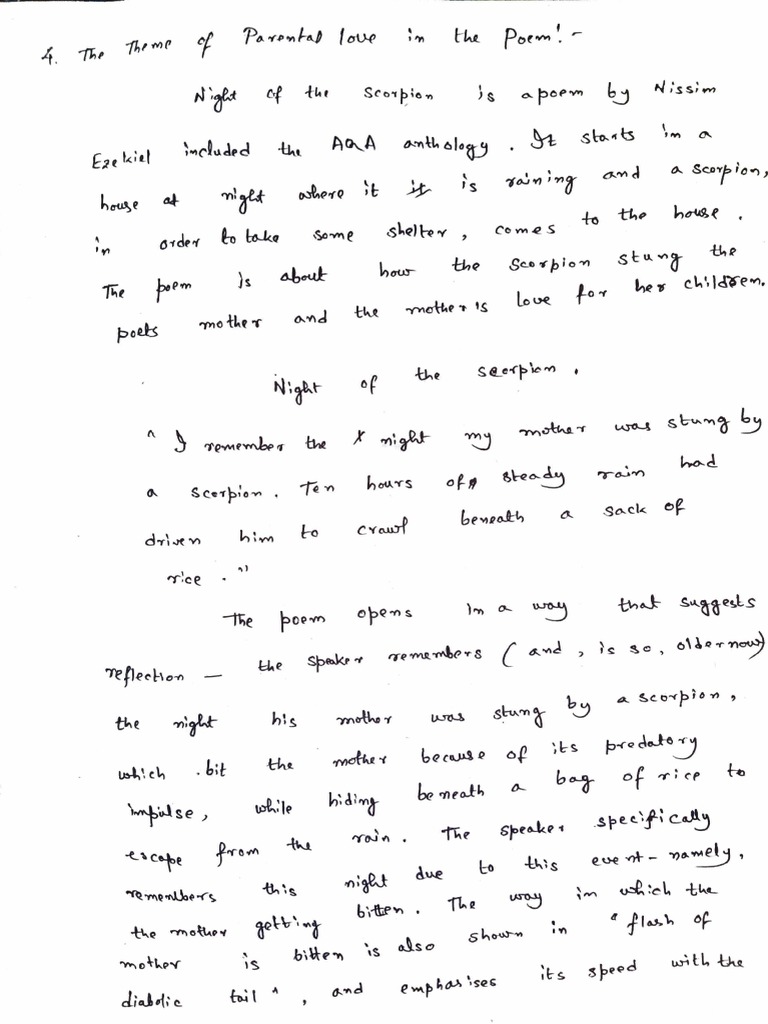 4. The Theme of Parental love in the Poem! -
Night of the scorpion is a poem by Nissim
Ezekiel included the AQA anthology. It starts in a
house at night where it is raining and a scorpion,
in order to take some shelter, comes to the house.
The poem is about how the scorpion stung the
poets mother and the mother's love for her children.
Night of the scorpion.
" I remember the night my mother was stung by
a scorpion. Ten hours of steady rain had
driven him to crawl beneath a sack of
rice . "
The poem opens in a way that suggests
reflection — the speaker remembers ( and , is so, older now)
the night his mother was stung by a scorpion,
which bit the mother because of its predatory
impulse, while hiding beneath a bag of rice to
escape from the rain. The speaker specifically
remembers this night due to this event - namely,
the mother getting bitten. The way in which the
mother is bitten is also shown in " flash of
diabolic tail " , and emphasises its speed with the